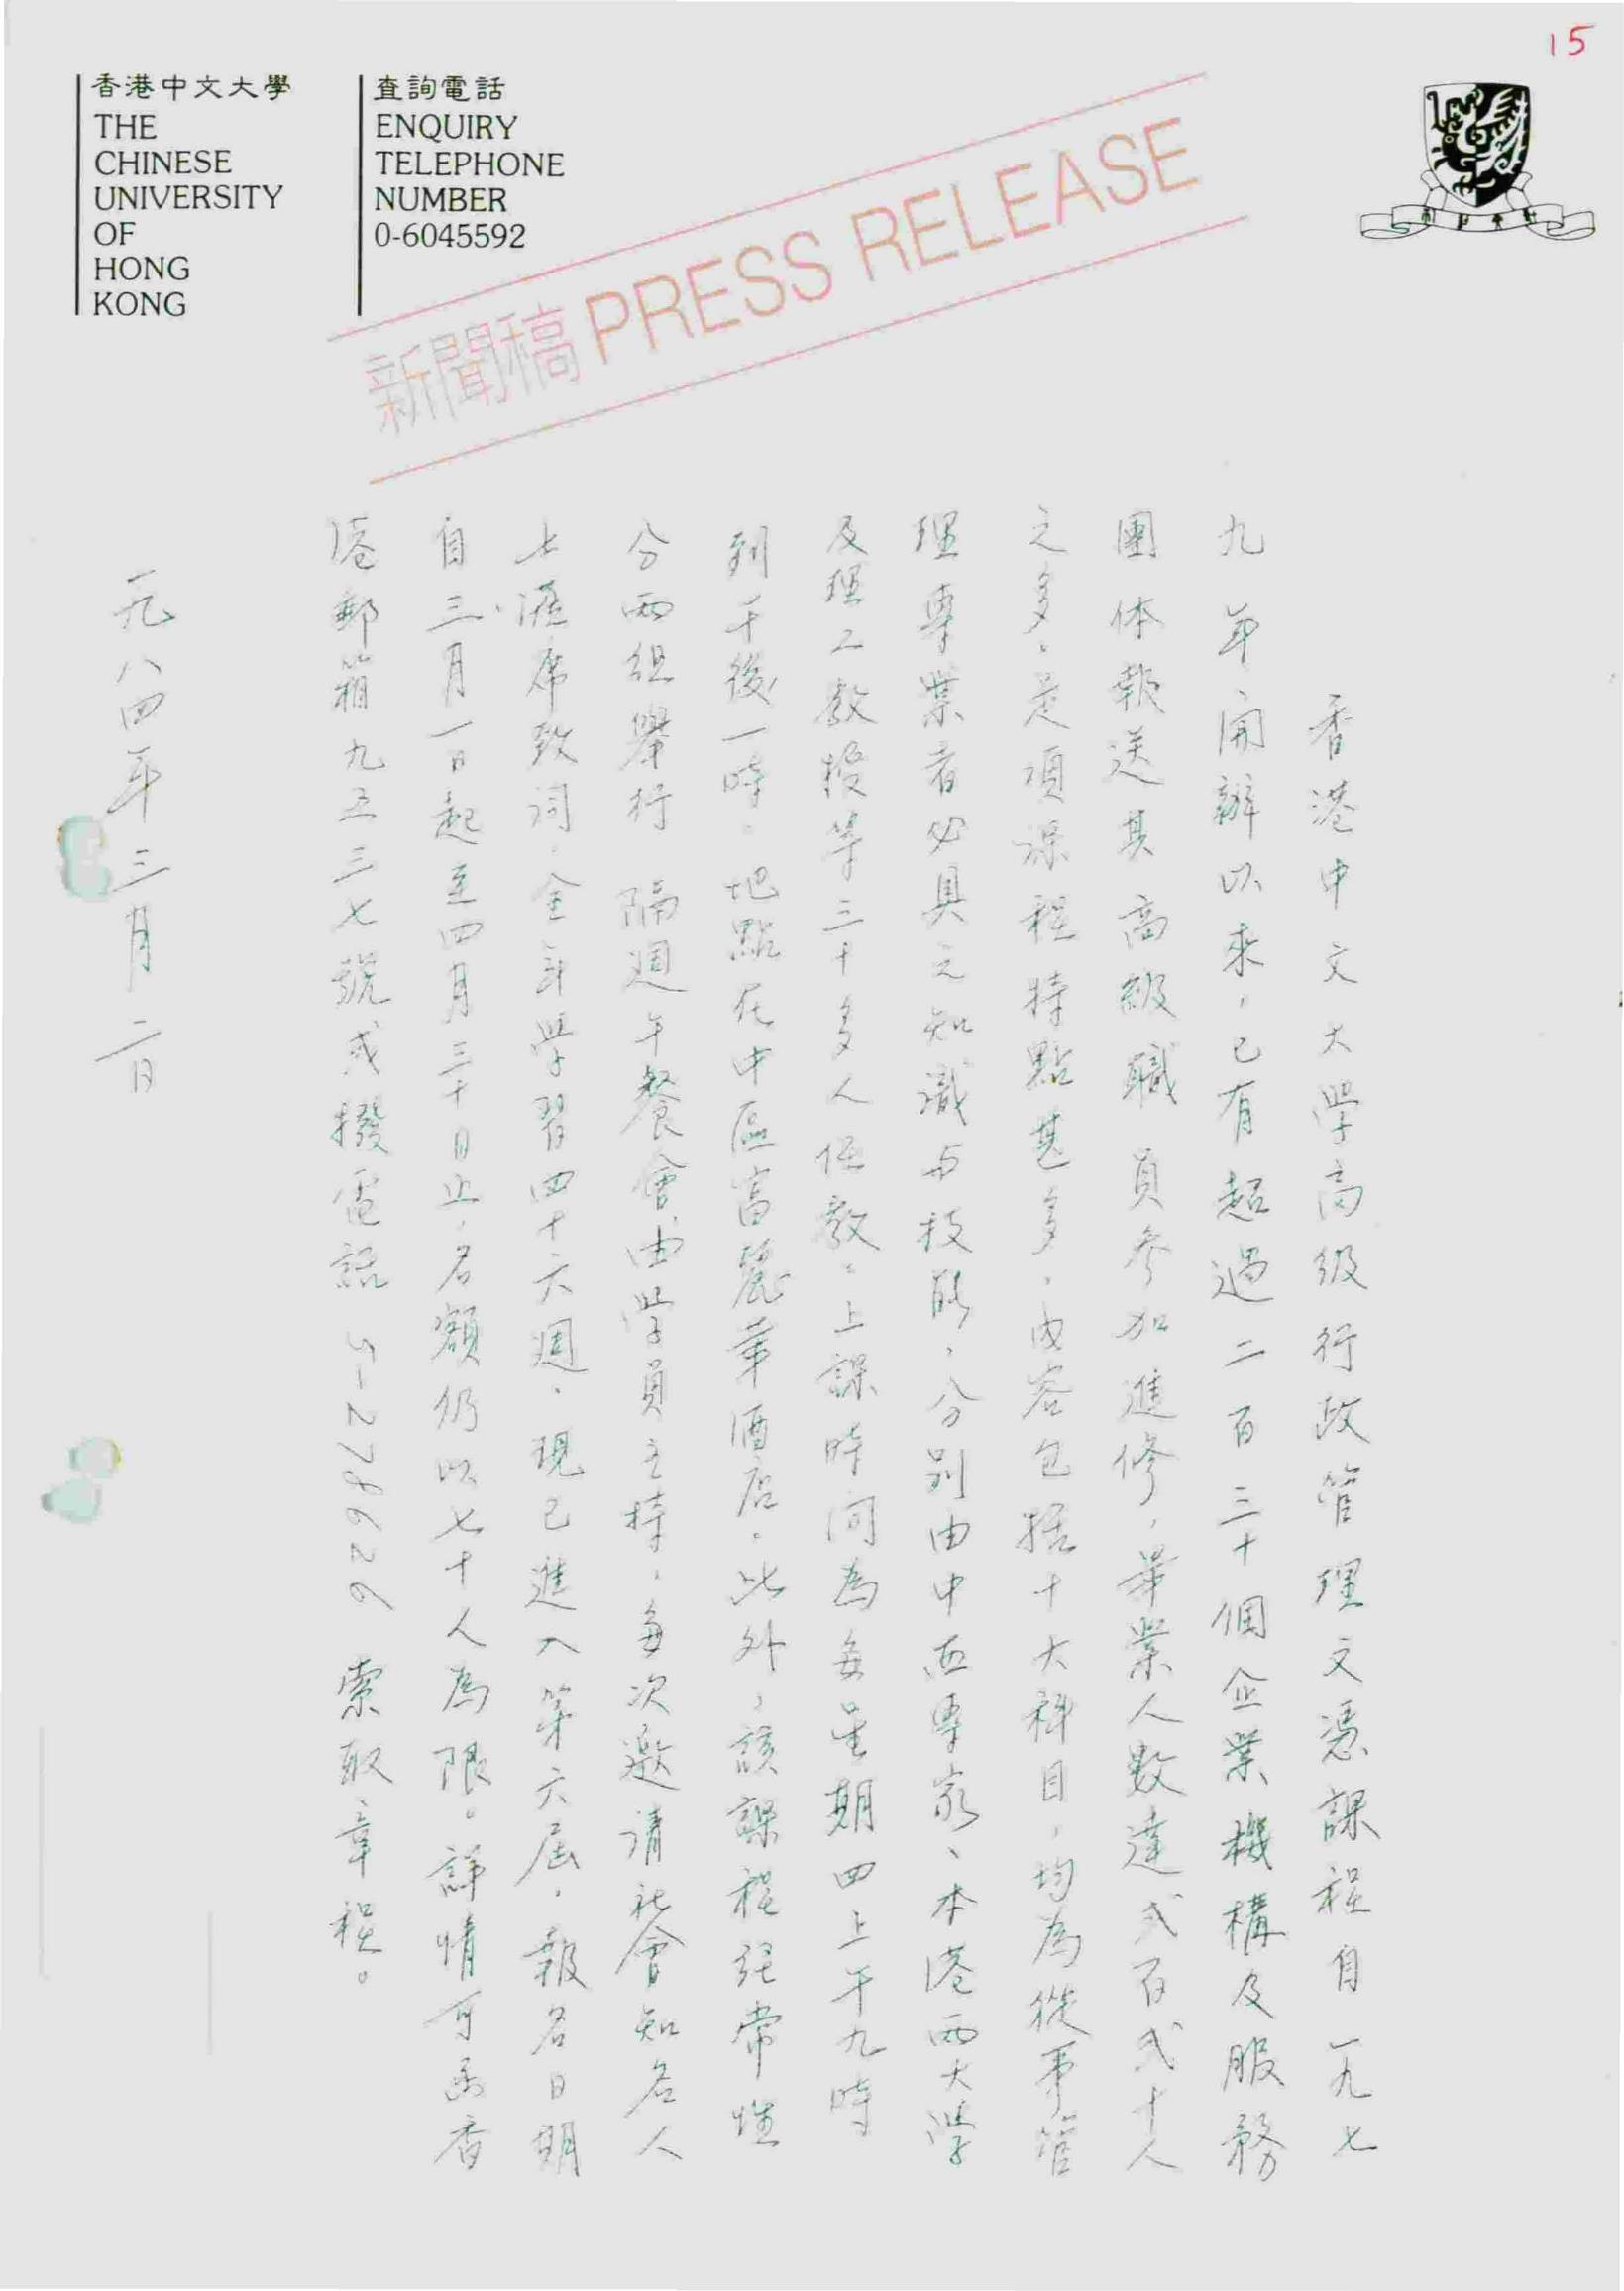 15
香港中文大學
THE
CHINESE
UNIVERSITY
OF
HONG
KONG
查詢電話
ENQUIRY
TELEPHONE
NUMBER
0-6045592
新聞稿 PRESS RELEASE
香港中文大學高级行政管理文憑課程自一九七
九年開辦以來，已有超過二百三十個企業機構及服務
團体報送其高級職員參加進修，畢業人數達弍百弍十人
之多。是項課程特點甚多，内容包括十大科目，均為從事管
理專業者必具之知識与技能，分別由中西專家、本港两大學
及理工教授等三十多人任教。上課時间為每星期四上午九時
到午後一時。地點在中區富麗華酒店。此外，該課程経常性
分两組舉行隔週午餐會，由學員主持，每次邀请社會知名人
士涖席致词。全年學習四十六週。現已進入第六屆，報名日期
自三月一日起至四月三十日止，名額仍以七十人為限。詳情可函香
港郵箱九五三七號或撥電話 5-278626 索取章程。
一九八四年三月二日